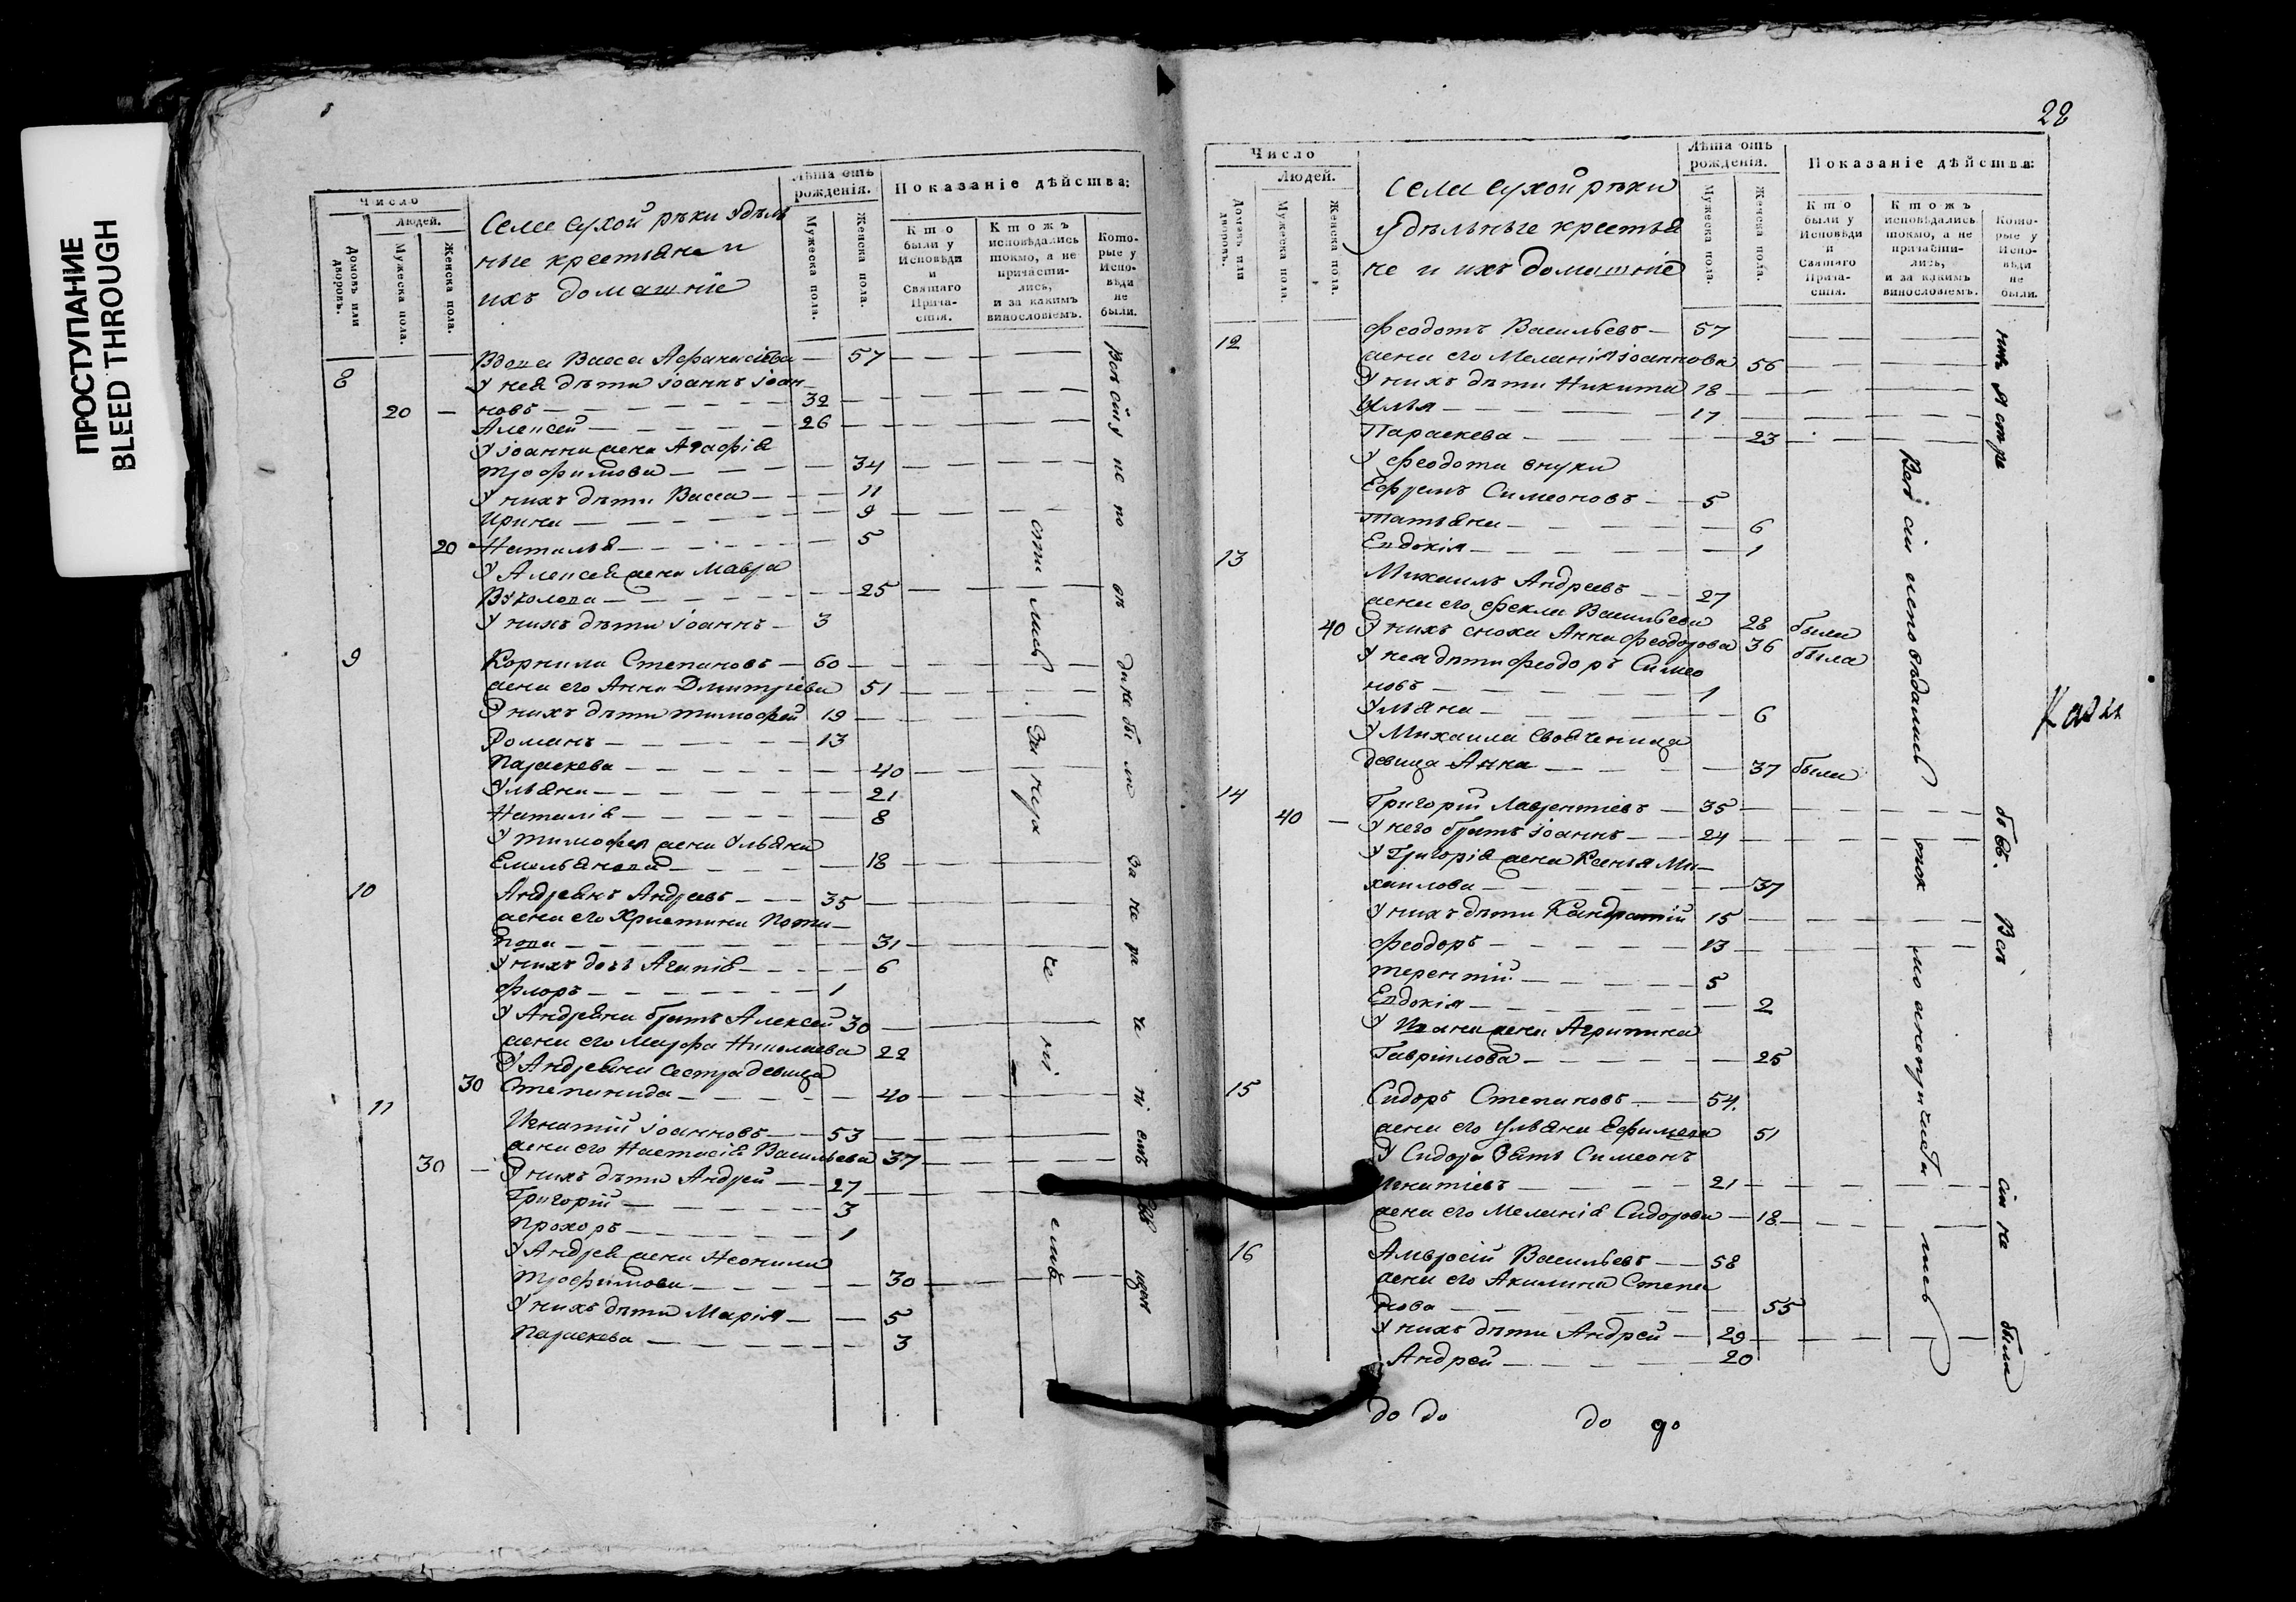 ПРОСТУПАНИЕ
BLEED THROUGH
Число
Людей.
Домовъ или дворовъ.
Мужеска пола.
Женска пола.
Села Сухой рѣки Удѣль
ные крестьяне и
ихъ домашніе
Лѣта отъ рожденія.
Мужеска пола.
Женска пола.
Показаніе дѣйства:
Кто были у Исповѣди и Святаго Прича-стія.
Ктожъ исповѣдались токмо, а не причасти-лись, и за какимъ винословіемъ.
Кото-рые у Испо-вѣди не были.
8 Вдова Васса Афанасіева — 57
У нея дѣти Іоаннъ Іоан-
20 — новъ — 32
Алексей — 26
У Іоанна жена Агафія
Трофимова — 34
У нихъ дѣти Васса — 11
Ирина — 9
20 Наталья — 5
У Алексея жена Мавра
Вуколова — 25
У нихъ дѣти Іоаннъ — 3
9 Корнила Степановъ — 60
жена его Анна Дмитріева 51
У нихъ дѣти Тимофей 19
Романъ — 13
Параскева — 40
Ульяна — 21
Наталія — 8
У Тимофея жена Ульяна
Емельянова — 18
10 Андреянъ Андреевъ — 35
жена его Христина Пота-
пова — 31
У нихъ дочь Агапія — 6
Флоръ — 1
У Андреяна братъ Алексей 30
жена его Марфа Николаева 22
У Андреяна сестра девица
30 Степанида — 40
11 Игнатий Іоанновъ — 53
жена его Настасія Васильева 37
30 — У нихъ дѣти Андрей — 27
Григорій — 3
Прохоръ — 1
У Андрея жена Неонила
Трофимова — 30
У нихъ дѣти Марія — 5
Параскева — 3
28
Число
Людей.
Домовъ или дворовъ.
Мужеска пола.
Женска пола.
Села Сухой рѣки
Удѣльные крестья
не и ихъ домашніе
Лѣта отъ рожденія.
Мужеска пола.
Женска пола.
Показаніе дѣйства:
Кто были у Исповѣди и Святаго Прича-стія.
Ктожъ исповѣдались токмо, а не причасти-лись, и за какимъ винословіемъ.
Кото-рые у Испо-вѣди не были.
12 Феодотъ Васильевъ — 57
жена его Меланія Іоаннова 56
У нихъ дѣти Никита 18
Илья — 17
Параскева — 23
У Феодота внуки
Ефремъ Симеоновъ — 5
Татьяна — 6
Евдокія — 1
13 Михаилъ Андреевъ — 27
жена его Фекла Васильева 28 была
40 У нихъ сноха Анна Феодорова 36 была
У нея дѣти Феодоръ Симео
новъ — 1
Ульяна — 6
У Михаила своячница
девица Анна — 37 была
14 Григорій Лаврентіевъ — 35
40 — У него братъ Іоаннъ — 24
У Григорія жена Ксенья Ми-
хаилова — 37
У нихъ дѣти Кандратій 15
Феодоръ — 13
Терентій — 5
Евдокія — 2
У Ивана жена Агрипина
Гавріилова — 25
15 Сидоръ Степановъ — 54
жена его Ульяна Ефимова 51
У Сидора зять Симеонъ
Игнатіевъ — 21
жена его Меланія Сидорова — 18
16 Амвросій Васильевъ — 58
жена его Акилина Степа
нова — 55
У нихъ дѣти Андрей — 29
Андрей — 20
Всѣ сіи исповѣдались токмо а не причастились
до до до до